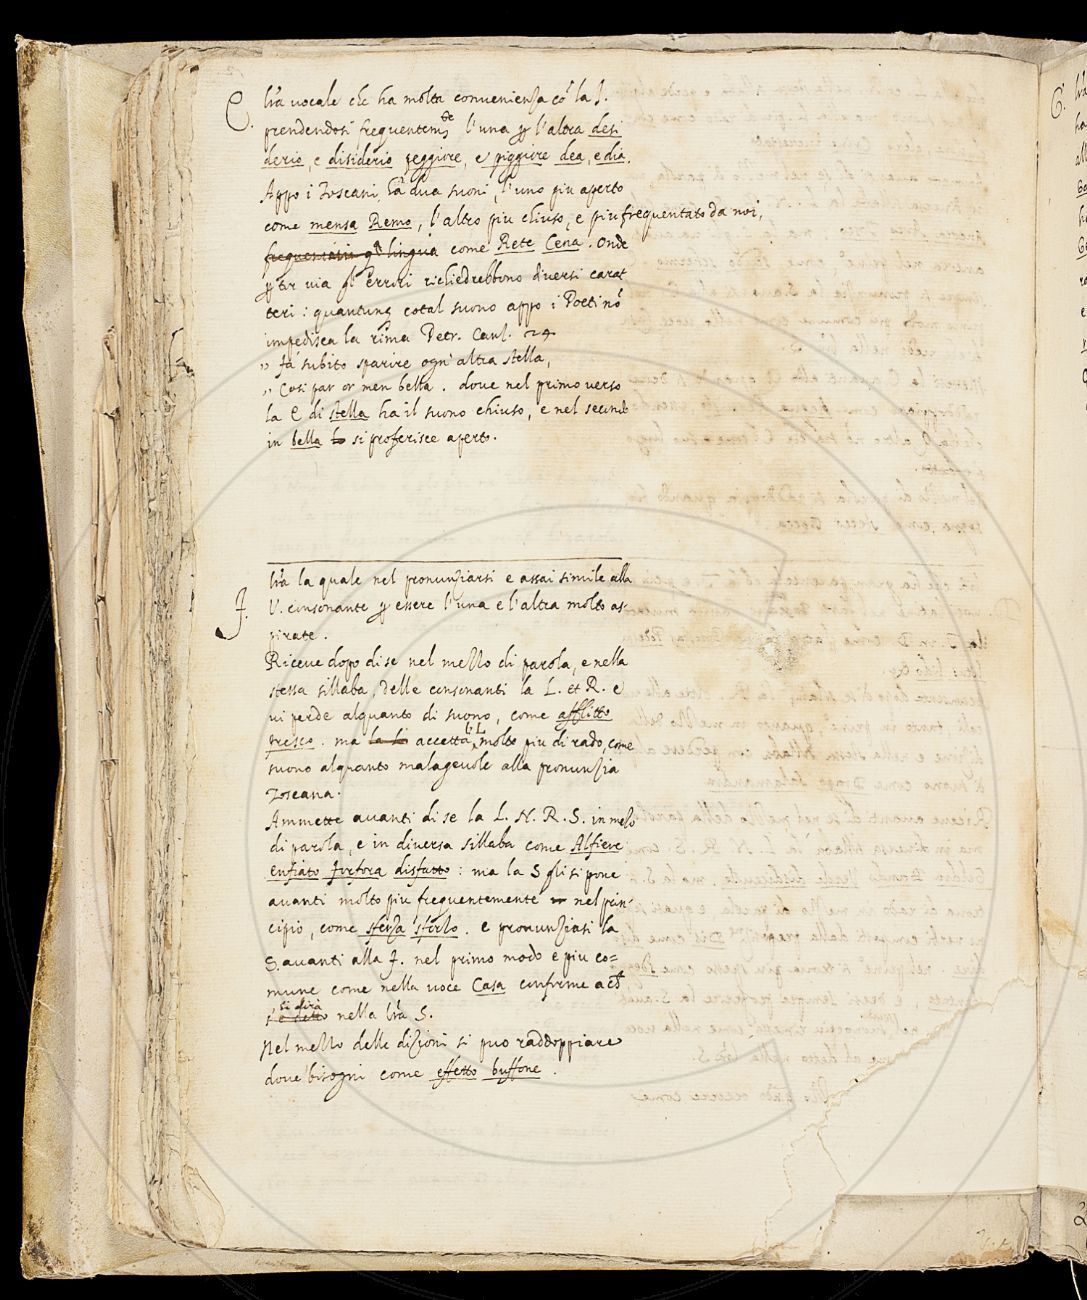 E. lr̃a vocale che ha molta convenienza cõ la J.
prendendosi frequentemẽte l'una ꝑ l'altra desi
derio, e disiderio peggiore, e piggiore dea, e dia.
Appo i Toscani, ha dua suoni, l'uno piu aperto
come mensa Remo, l'altro piu chiuso, e piu frequentato da noi,
lingua come Rete Cena. Onde
ꝑ tor via gl'errori richiedrebbono diversi carat
teri: quantunq cotal suono appo i Poeti nõ
impedisca la rima Petr. Canz. 24.
„ Fa subito sparire ogn'altra stella,
„ Cosi par or men bella. dove nel primo verso
la E di stella ha il suono chiuso, e nel secondo
in bella si proferisce aperto.
F. lr̃a la quale nel pronunziarsi e assai simile alla
V. consonante ꝑ essere l'una e l'altra molto as-
pirate.
Riceve dopo di se nel mezzo di parola, e nella
stessa sillaba, delle consonanti la L. et R. e
vi perde alquanto di suono, come afflitto
fresco. ma la L accetta la L molto piu di rado, come
suono alquanto malagevole alla pronunzia
Toscana.
Ammette avanti di se la L. N. R. S. in mezo
di parola, e in diversa sillaba come Alfiere
enfiato forfora disfatto: ma la S gli si pone
avanti molto piu frequentemente nel prin-
cipio, come sferza sforzo. e pronunziasi la
S. avanti alla F. nel primo modo e piu co=
mune come nella voce Casa conforme a cio
si dirà
s'è detto nella lr̃a S.
Nel mezzo delle dizioni si puo raddoppiare
dove bisogni come effetto buffone.